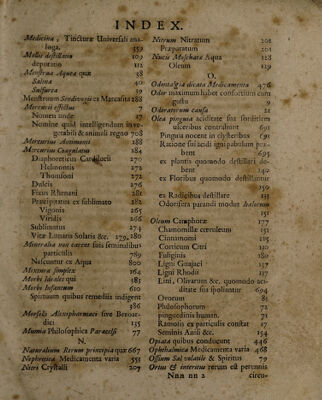 INDEX.
Medicina, Tincturæ Universali ana-
loga. 359
Mellis destillatio 109
depuratio 112
Menstrua Aquea quæ 38
Salina 40
Sulfurea 39
Menstruum Seedivogii ex Marcasita 288
Mercurii effectus 7
Nomen unde 17
Nomine quid intelligendum in ve-
getabili & animali regno 708
Mercurius Antimonii 288
Mercurius Coagulatus 284
Diaphoreticus Cardilucii 270
Halmontii 272
Thunsoni 272
Dulcis 276
Fixus Rhumani 281
Præcipitatus ex sublimato 282
Vigonis 265
Viridis 266
Sublimatus 274
Vitæ Lunaris Solaris &c. 279, 280
Mineralia non carent suis seminalibus
particulis 789
Nascuntur ex Aqua 800
Mixtura simplex 164
Morbi Ideales qui 481
Morbo Infantum 610
Spirituum quibus remediis indigent
386
Morsuli Alexipharmaci sive Bezoar-
dici 135
Mumia Philosophica Paracelsi 77
N.
Naturalium Rerum principia quæ 667
Nephretica Medicamenta varia 551
Nitri Crystalli 207
Nitrum Nitratum 202
Præparatum 202
Nucis Moschatæ Aqua 128
Oleum 129
O.
Odontalgia dicata Medicamenta 476
Odor maximum habet consortium cum
gustu 9
Odiaratorum causa 21
Olea pinguia aciditate sua sordidem
ulceribus contrahunt 695
Pinguia nocent in clysteribus 91
Ratione sui acidi igni pabulum præ-
bent 695
ex plantis quomodo destillari de-
bent 140
ex Floribus quomodo destillantur
150
ex Radicibus destillare 153
Odorifera parandi modus
151
Oleum Camphoræ 177
Chamomillæ cæruleum 151
Cinnamomi 115
Corticum Citri 143
Fuliginis 79
Ligni Guajaci 157
Ligni Rhodii 117
Lini, Olivarum &c. quomodo aci-
ditate sua spoliantur 694
Ovorum 81
Philosophorum 71
pinguedinis human. 71
Ramoris ex particulis constat 17
Seminis Anisi &c. 154
Opiata quibus conducunt 446
Ophthalmica Medicamenta varia 468
Ossium Sal volatile & Spiritus 79
Ortus & interitus rerum est perennis
Nnn nn 2 circu-